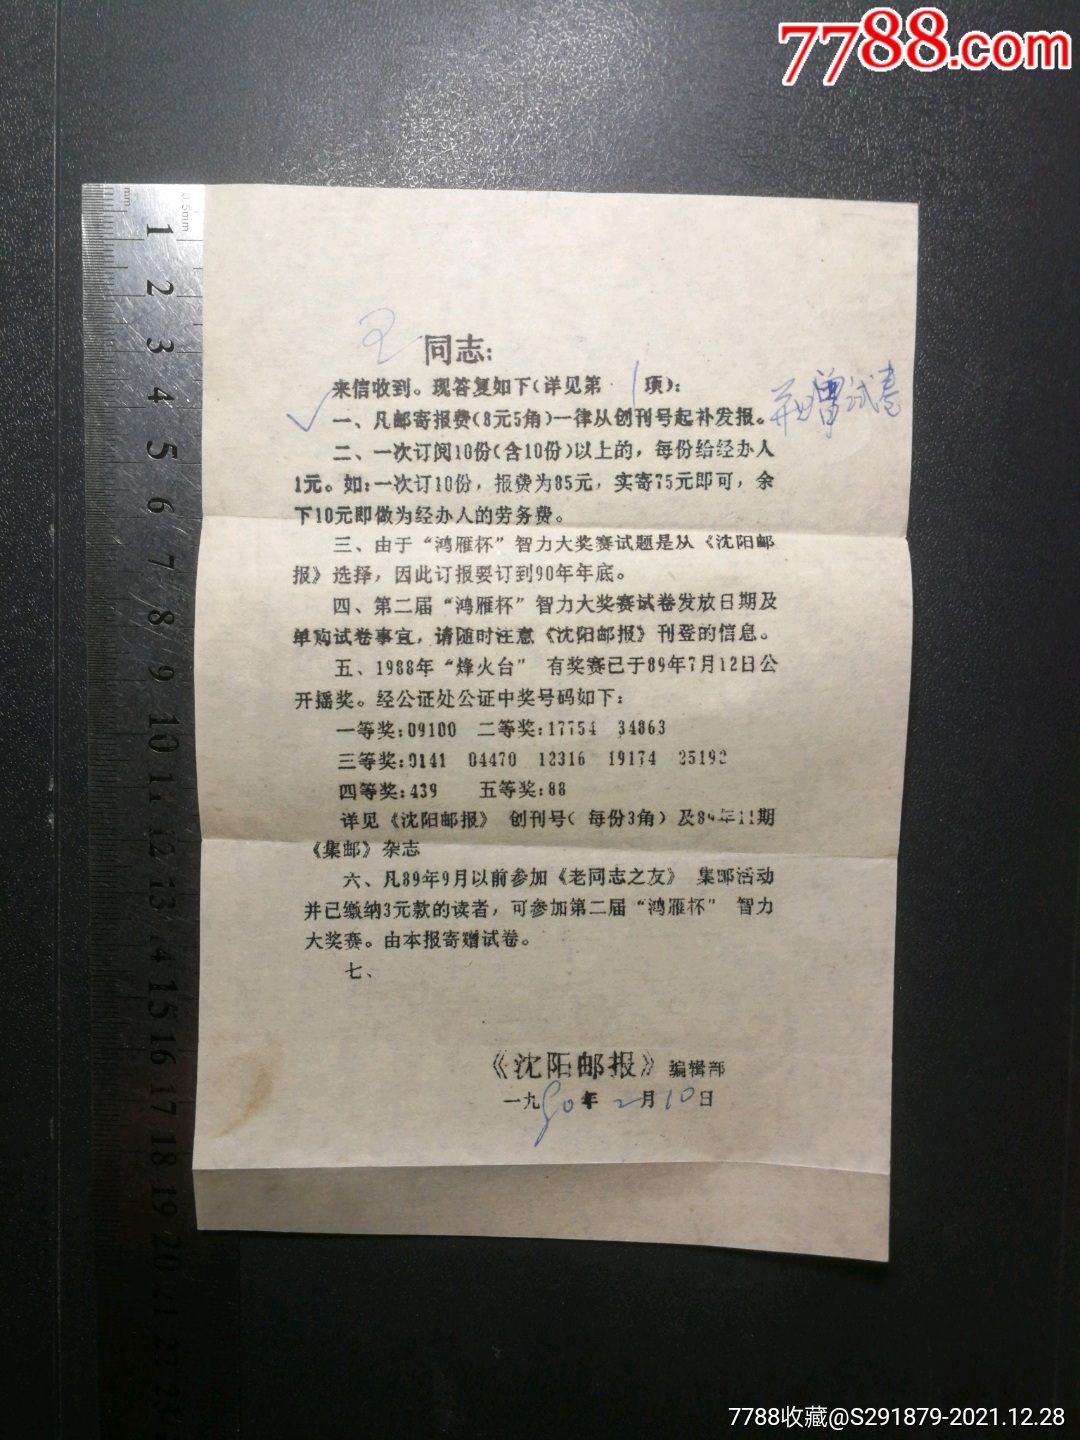 7788.com
王同志:
来信收到。现答复如下(详见第1项):
✓一、凡邮寄报费(8元5角)一律从创刊号起补发报。并曾试卷
二、一次订阅10份(含10份)以上的,每份给经办人
1元。如:一次订10份,报费为85元,实寄75元即可,余
下10元即做为经办人的劳务费。
三、由于“鸿雁杯”智力大奖赛试题是从《沈阳邮
报》选择,因此订报要订到90年年底。
四、第二届“鸿雁杯”智力大奖赛试卷发放日期及
单购试卷事宜,请随时注意《沈阳邮报》刊登的信息。
五、1988年“烽火台”有奖赛已于89年7月12日公
开摇奖。经公证处公证中奖号码如下:
一等奖:09100 二等奖:17754 34863
三等奖:0141 04470 12316 19174 25192
四等奖:439 五等奖:88
详见《沈阳邮报》创刊号(每份3角)及89年11期
《集邮》杂志
六、凡89年9月以前参加《老同志之友》集邮活动
并已缴纳3元款的读者,可参加第二届“鸿雁杯”智力
大奖赛。由本报寄赠试卷。
七、
《沈阳邮报》编辑部
一九90年2月10日
0.5mm
mm
1
2
3
4
5
6
7
8
9
10
11
12
13
14
15
16
17
18
19
20
21
22
7788收藏@S291879-2021.12.28